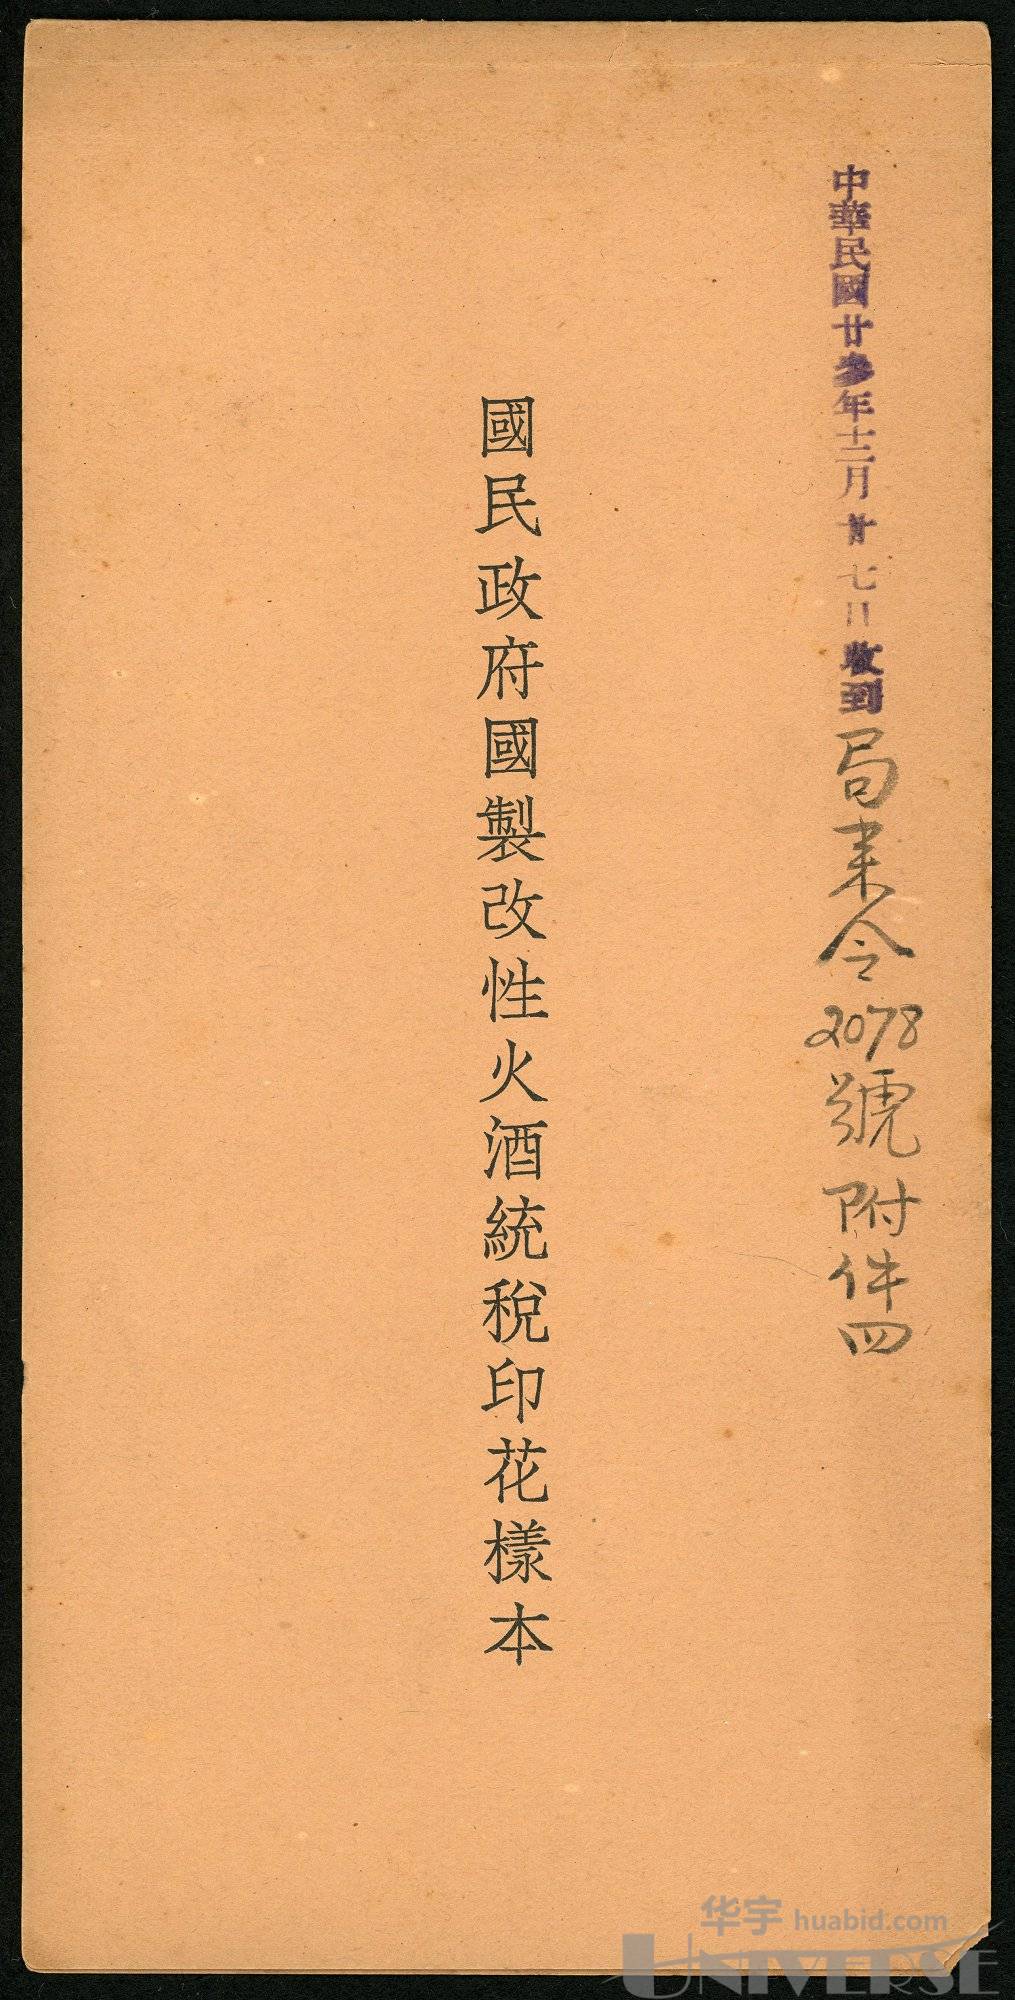 中華民國廿參年十二月廿七日收到
局來令2078號附件四
國民政府國製改性火酒統稅印花樣本
华宇 huabid.com
UNIVERSE